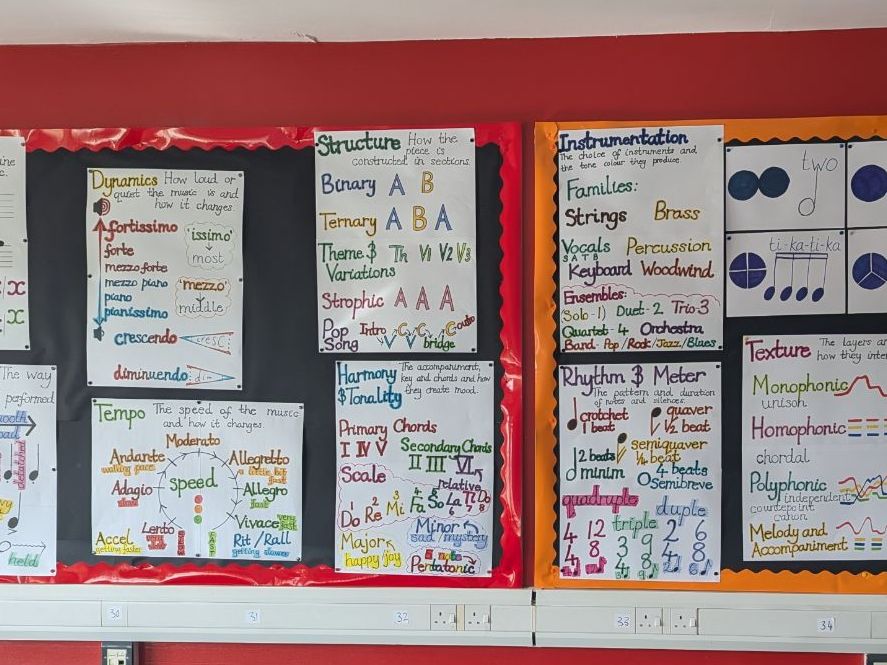 ine
c.
x
x
The way
performed
detached
held
Dynamics How loud or
quiet the music is and
how it changes.
fortissimo
forte
mezzo forte
mezzo piano
piano
pianissimo
'issimo'
most
'mezzo'
middle
crescendo cresc.
diminuendo dim
Tempo The speed of the music
and how it changes.
Moderato
Andante
walking pace
Allegretto
a little bit
fast
Adagio
slow
speed
Allegro
fast
Lento
very
slow
Vivace very
fast
Accel
getting faster
Rit / Rall
getting slower
Structure How the
piece is
constructed in sections.
Binary A B
Ternary A B A
Theme & Th V1 V2 V3
Variations
Strophic A A A
Pop
Song
Intro C C C Coda
V V bridge
Harmony
& Tonality
The accompaniment,
key and chords and how
they create mood.
Primary Chords
I IV V
Secondary Chords
II III VI
relative
Scale
1 2 3 4 5 6 7 8
Do Re Mi Fa So La Ti Do
Major
happy/joy
Minor
sad/mystery
5 note
Pentatonic
Instrumentation
The choice of instruments and
the tone colour they produce.
Families:
Strings Brass
Vocals Percussion
S A T B
Keyboard Woodwind
Ensembles:
(Solo-1) Duet-2 Trio-3
Quartet-4 Orchestra
Band- Pop/Rock/Jazz/Blues
Rhythm & Meter
The pattern and duration
of notes and silences.
crotchet
1 beat
quaver
1/2 beat
2 beats
minim
semiquaver
1/4 beat
4 beats
semibreve
quadruple
triple
duple
4 12 3 9 2 6
4 8 4 8 4 8
two
ti-ka-ti-ka
Texture The layers ar
how they inter
Monophonic
unison
Homophonic
chordal
Polyphonic
independent
counterpoint
canon
Melody and
Accompaniment
30
31
32
33
34